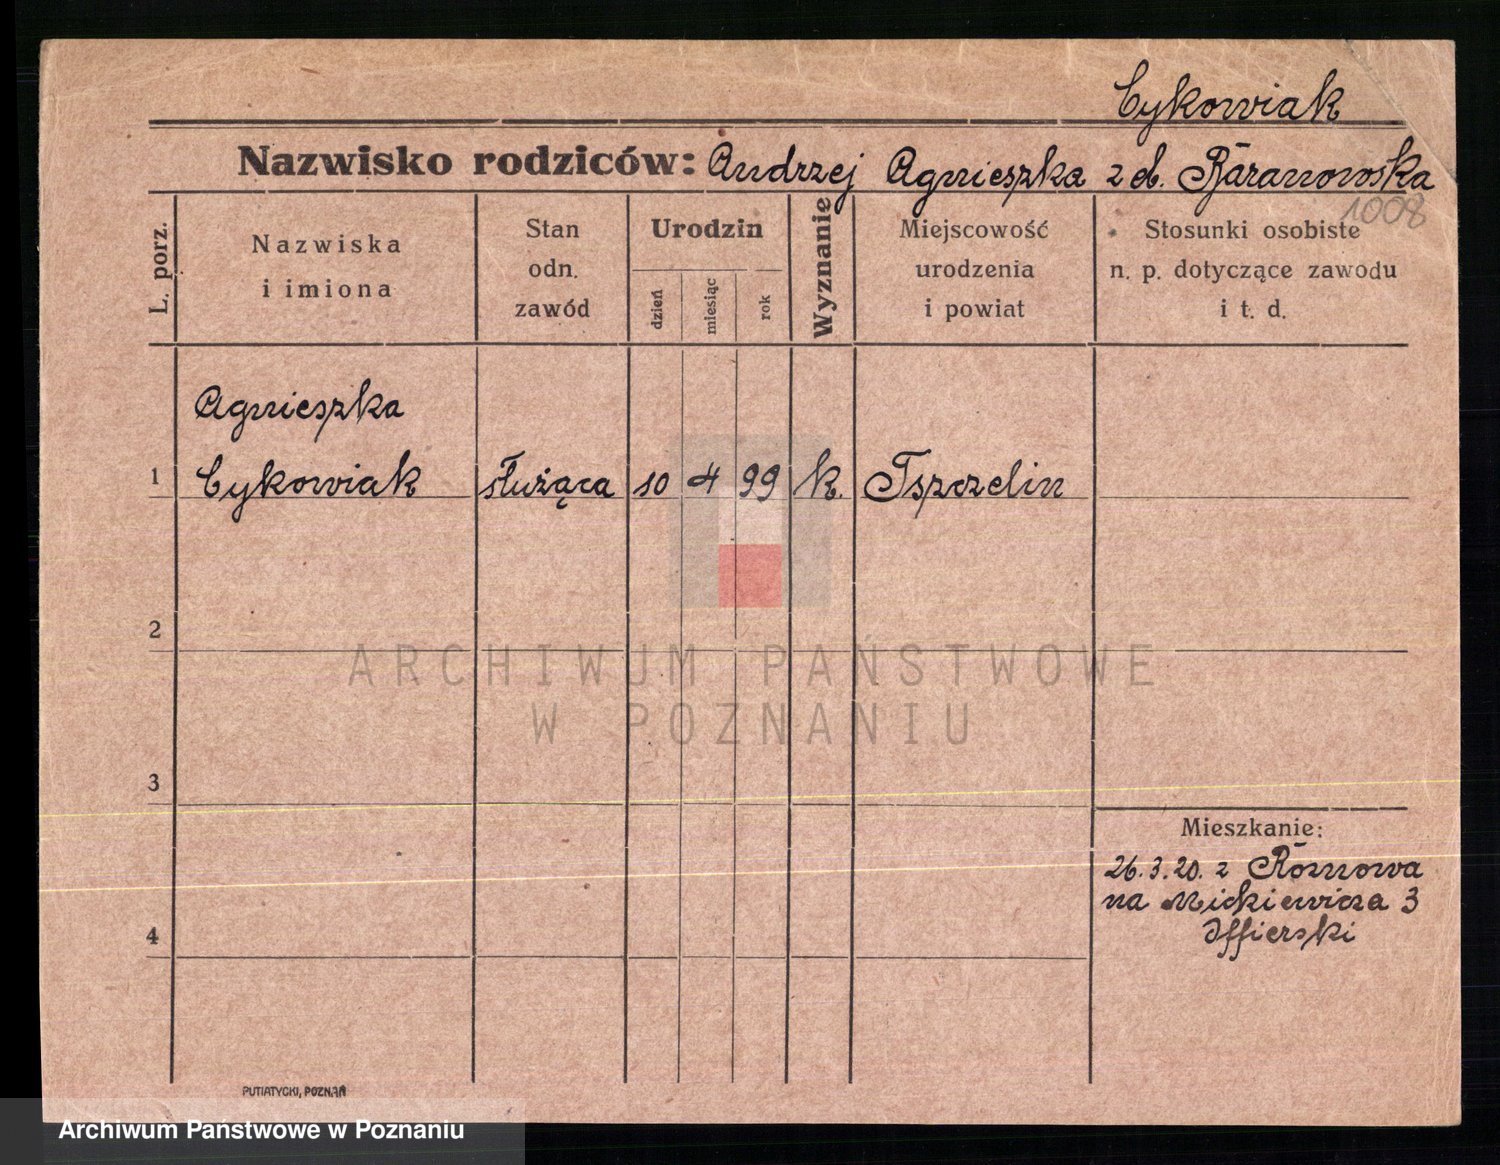 Cykowiak
Nazwisko rodziców: Andrzej Agnieszka z d. Baranowska
1008
L. porz.
Nazwiska
i imiona
Stan
odn.
zawód
Urodzin
dzień
miesiąc
rok
Wyznanie
Miejscowość
urodzenia
i powiat
Stosunki osobiste
n. p. dotyczące zawodu
i t. d.
Agnieszka
1 Cykowiak służąca 10 4 99 k. Tszczelin
2
ARCHIWUM PAŃSTWOWE
W POZNANIU
3
Mieszkanie:
26.3.20. z Rożnowa
na Mickiewicza 3
4
PUTIATYCKI, POZNAŃ
Archiwum Państwowe w Poznaniu